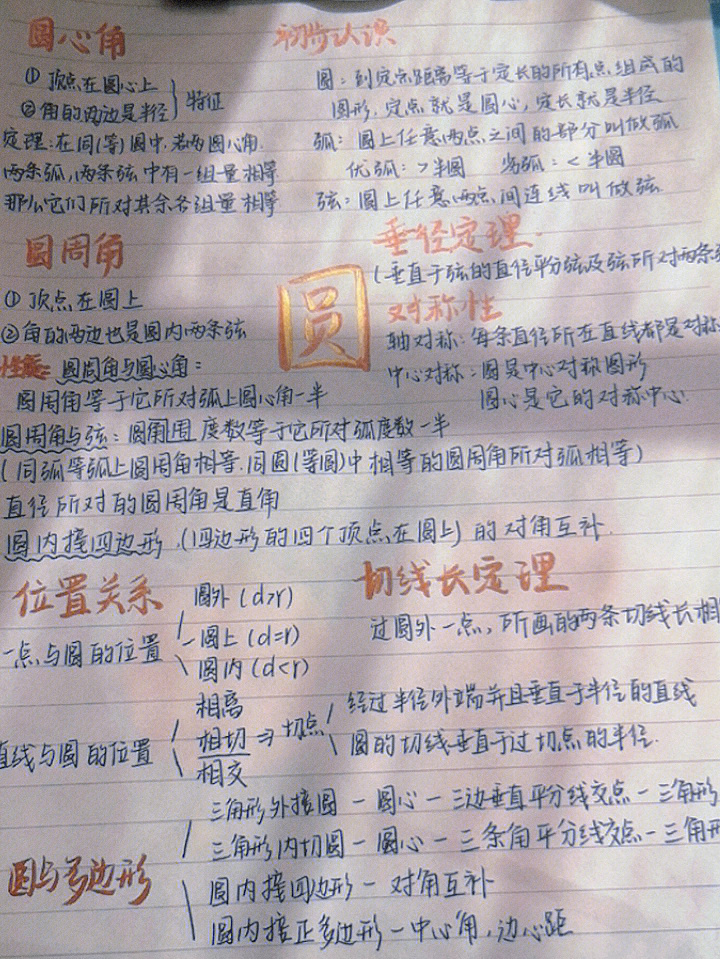 圆心角
① 顶点在圆心上
② 角的两边是半径
特征
定理:在同(等)圆中,若两圆心角.
两条弧,两条弦中有一组量相等
那么它们所对其余各组量相等
初步认识
圆:到定点距离等于定长的所有点组成的
图形.定点就是圆心,定长就是半径
弧:圆上任意两点之间的部分叫做弧
优弧:>半圆 劣弧:<半圆
弦:圆上任意两点间连线叫做弦
圆周角
① 顶点在圆上
② 角的两边也是圆内两条弦
性质:圆周角与圆心角:
圆周角等于它所对弧上圆心角一半
圆
垂径定理.
(垂直于弦的直径平分弦及弦所对两条
对称性
轴对称:每条直径所在直线都是对称
中心对称:圆是中心对称图形
圆心是它的对称中心.
圆周角与弦:圆角周 度数等于它所对弧度数一半
(同弧等弧上圆周角相等.同圆(等圆)中相等的圆周角所对弧相等)
直径所对的圆周角是直角
圆内接四边形.(四边形的四个顶点在圆上)的对角互补.
位置关系
一点与圆的位置
圆外(d>r)
圆上(d=r)
圆内(d<r)
切线长定理
过圆外一点,所画的两条切线长相
直线与圆的位置
相离
相切⇒切点
相交
经过半径外端并且垂直于半径的直线
圆的切线垂直于过切点的半径.
圆与多边形
三角形外接圆-圆心-三边垂直平分线交点-三角形
三角形内切圆-圆心-三条角平分线交点-三角形
圆内接四边形-对角互补
圆内接正多边形-中心角,边心距